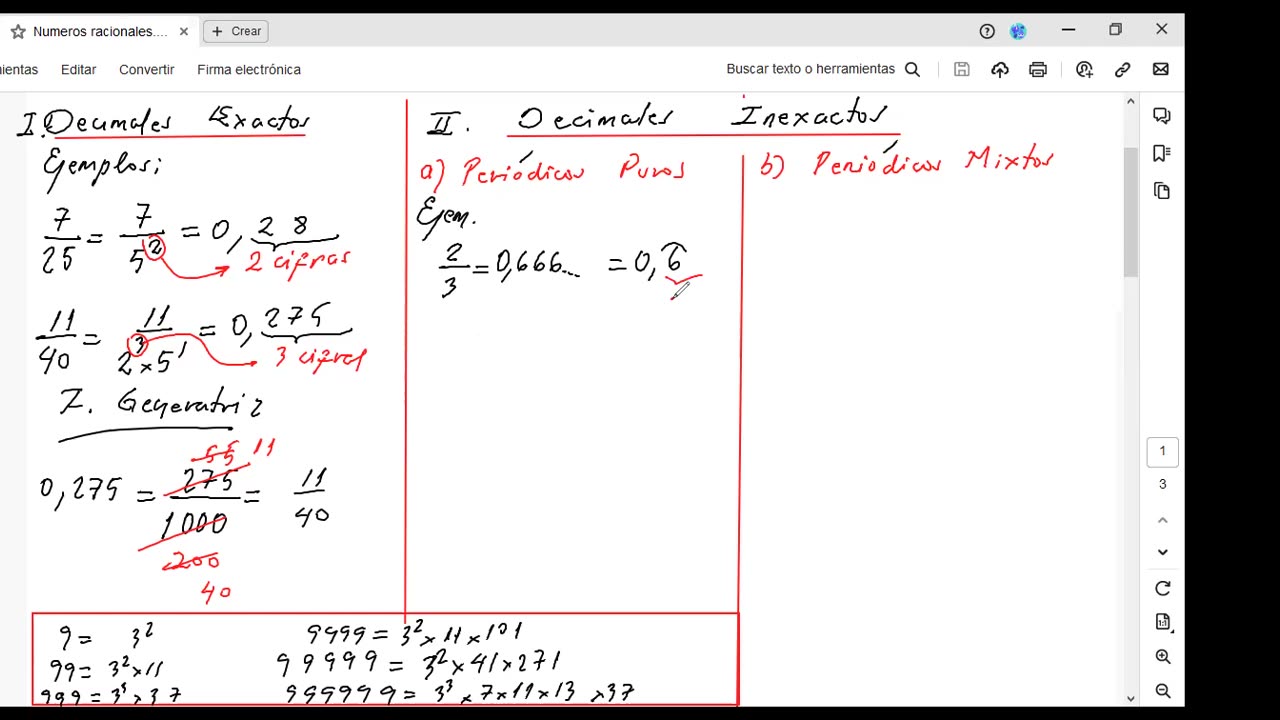 Numeros racionales....
Crear
ientas Editar Convertir Firma electrónica
Buscar texto o herramientas
I. Decimales Exactos
Ejemplos:
7/25 = 7/5² = 0,28
2 cifras
11/40 = 11/2³×5¹ = 0,275
3 cifras
F. Generatriz
55 11
0,275 = 275/1000 = 11/40
200
40
II. Decimales Inexactos
a) Periódicos Puros
Ejem.
2/3 = 0,666... = 0,6̂
b) Periódicos Mixtos
9 = 3²
99 = 3²×11
999 = 3³×37
9999 = 3²×11×101
99999 = 3²×41×271
999999 = 3³×7×11×13×37
1
3